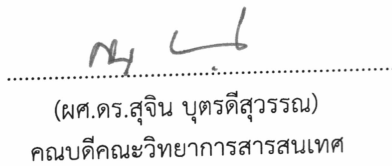 (ผศ.ดร.สุจิน บุตรดีสุวรรณ)
คณบดีคณะวิทยาการสารสนเทศ